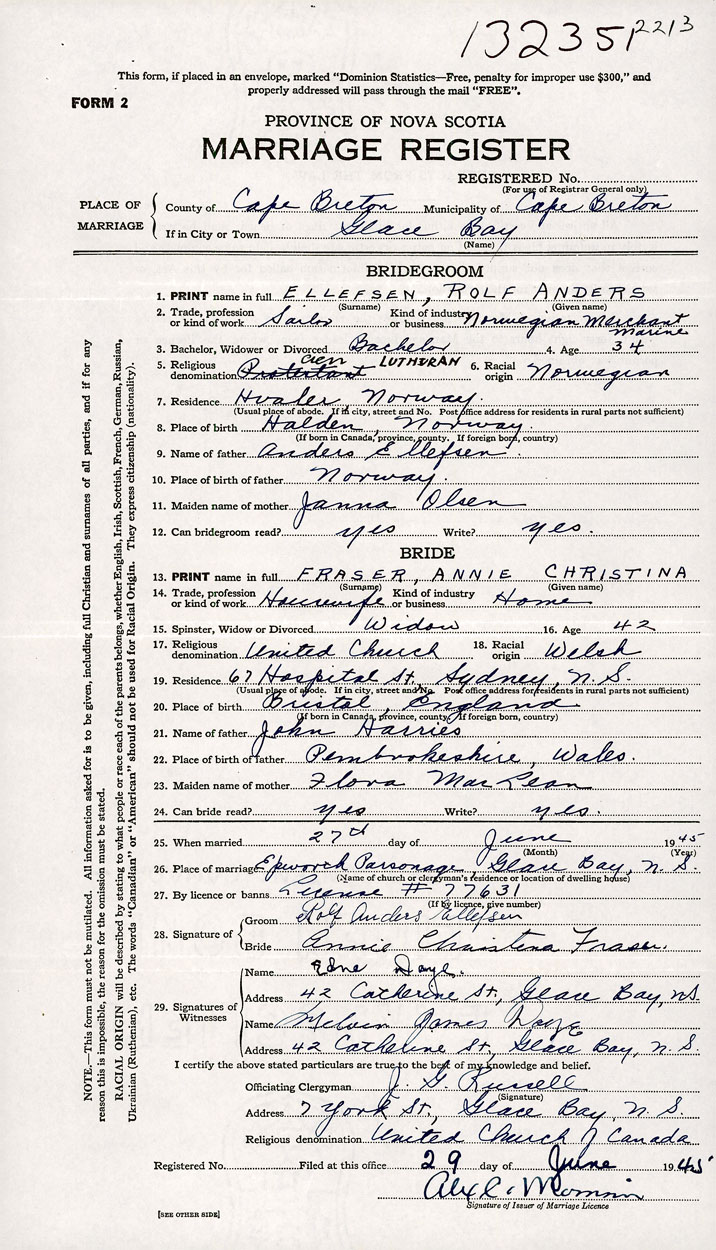 132351 2213
This form, if placed in an envelope, marked “Dominion Statistics—Free, penalty for improper use $300,” and
properly addressed will pass through the mail “FREE”.
FORM 2
PROVINCE OF NOVA SCOTIA
MARRIAGE REGISTER
REGISTERED No.
(For use of Registrar General only)
PLACE OF MARRIAGE
County of Cape Breton Municipality of Cape Breton
If in City or Town Glace Bay
(Name)
BRIDEGROOM
1. PRINT name in full ELLEFSEN, ROLF ANDERS
(Surname) (Given name)
2. Trade, profession or kind of work Sailor Kind of industry or business Norwegian Merchant Marine
3. Bachelor, Widower or Divorced Bachelor 4. Age 34
5. Religious denomination Protestant LUTHURAN 6. Racial origin Norwegian
7. Residence Hvaler, Norway.
(Usual place of abode. If in city, street and No. Post office address for residents in rural parts not sufficient)
8. Place of birth Halden, Norway.
(If born in Canada, province, county. If foreign born, country)
9. Name of father Anders Ellefsen.
10. Place of birth of father Norway.
11. Maiden name of mother Janna Olsen
12. Can bridegroom read? yes Write? yes.
BRIDE
13. PRINT name in full FRASER, ANNIE CHRISTINA
(Surname) (Given name)
14. Trade, profession or kind of work Housewife Kind of industry or business Home
15. Spinster, Widow or Divorced Widow 16. Age 42
17. Religious denomination United Church 18. Racial origin Welsh
19. Residence 67 Hospital St, Sydney, N. S.
(Usual place of abode. If in city, street and No. Post office address for residents in rural parts not sufficient)
20. Place of birth Bristol, England
(If born in Canada, province, county. If foreign born, country)
21. Name of father John Harries
22. Place of birth of father Pembrokeshire, Wales.
23. Maiden name of mother Flora MacLean
24. Can bride read? yes Write? yes.
25. When married 27th day of June 1945
(Month) (Year)
26. Place of marriage Epworth Parsonage, Glace Bay, N. S.
(Name of church or clergyman's residence or location of dwelling house)
27. By licence or banns License # 77631
(If by licence, give number)
28. Signature of
Groom Rolf Anders Ellefsen
Bride Annie Christena Fraser.
29. Signatures of Witnesses
Name Daye.
Address 42 Catherine St, Glace Bay, N.S.
Name Melvin James Daye
Address 42 Catherine St, Glace Bay, N. S
I certify the above stated particulars are true to the best of my knowledge and belief.
Officiating Clergyman J. G. Russell
(Signature)
Address 7 York St., Glace Bay, N. S.
Religious denomination United Church of Canada
Registered No. Filed at this office 29 day of June 1945
Alex
Signature of Issuer of Marriage Licence
[SEE OTHER SIDE]
NOTE.—This form must not be mutilated. All information asked for is to be given, including full Christian and surnames of all parties, and if for any
reason this is impossible, the reason for the omission must be stated.
RACIAL ORIGIN will be described by stating to what people or race each of the parents belongs, whether English, Irish, Scottish, French, German, Russian,
Ukrainian (Ruthenian), etc. The words “Canadian” or “American” should not be used for Racial Origin. They express citizenship (nationality).